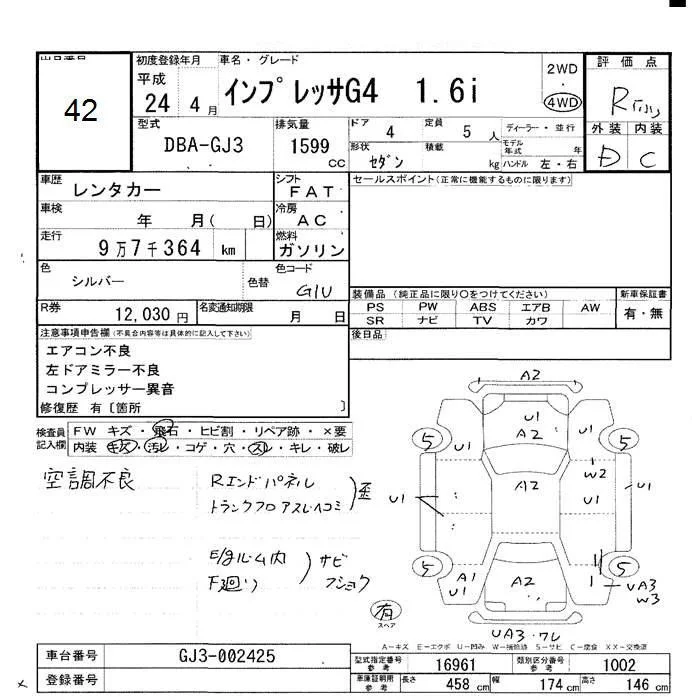 出品番号
42
初度登録年月
平成
24 4 月
車名・グレード
インプレッサG4 1.6i
2WD
4WD
評価点
R
外装 内装
D C
型式
DBA-GJ3
排気量
1599 cc
ドア 4
定員 5 人
ディーラー・並行
形状 セダン
積載 kg
モデル年式 年
ハンドル 左・右
車歴
レンタカー
シフト
FAT
車検
年 月( 日)
冷房
AC
走行
9万7千364 km
燃料
ガソリン
色
シルバー
色替
色コード
G1U
R券
12,030 円
名変通知期限
月 日
セールスポイント(正常に機能するものに限ります)
装備品 (純正品に限り〇をつけてください)
PS PW ABS エアB AW
SR ナビ TV カワ
新車保証書
有・無
後日品
注意事項申告欄(不具合内容等は具体的に記入して下さい)
エアコン不良
左ドアミラー不良
コンプレッサー異音
修復歴 有〔箇所 〕
検査員記入欄
FW キズ・飛石・ヒビ割・リペア跡・×要
内装 キズ・汚レ・コゲ・穴・スレ・キレ・破レ
空調不良
Rエンドパネル
トランクフロアスレヘコミ
歪
E/gルーム内
F廻り
サビ
フショク
A2
U1
A2
5
U1
5
W2
U1
A2
U1
U1
5
A1
U1
A2
5
UA3
W3
UA3・ワレ
有
スペア
A-キズ E-エクボ U-凹み W-補修跡 S-サビ C-腐食 XX-交換済
車台番号
GJ3-002425
登録番号
型式指定番号 参考
16961
類別区分番号 参考
1002
車庫証明用 参考
長さ 458 cm
幅 174 cm
高さ 146 cm